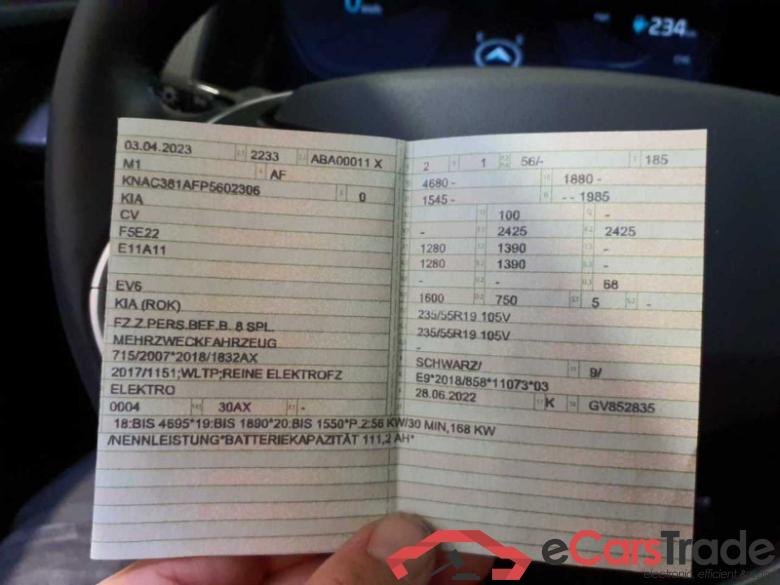 234
03.04.2023 2233 ABA00011 X
M1 AF
KNAC381AFP5602306 0
KIA
CV
F5E22
E11A11
EV6
KIA (ROK)
FZ.Z.PERS.BEF.B. 8 SPL.
MEHRZWECKFAHRZEUG
715/2007*2018/1832AX
2017/1151;WLTP;REINE ELEKTROFZ
ELEKTRO
0004 30AX -
18:BIS 4695*19:BIS 1890*20:BIS 1550*P.2:56 KW/30 MIN,168 KW
/NENNLEISTUNG*BATTERIEKAPAZITÄT 111,2 AH*
2 1 56/- 185
4680 - 1880 -
1545 - - - 1985
100 -
- 2425 2425
1280 1390 -
1280 1390 -
- - 68
1600 750 5 -
235/55R19 105V
235/55R19 105V
-
SCHWARZ/ 9/
E9*2018/858*11073*03
28.06.2022 K GV852835
eCarsTrade
electronic, efficient &